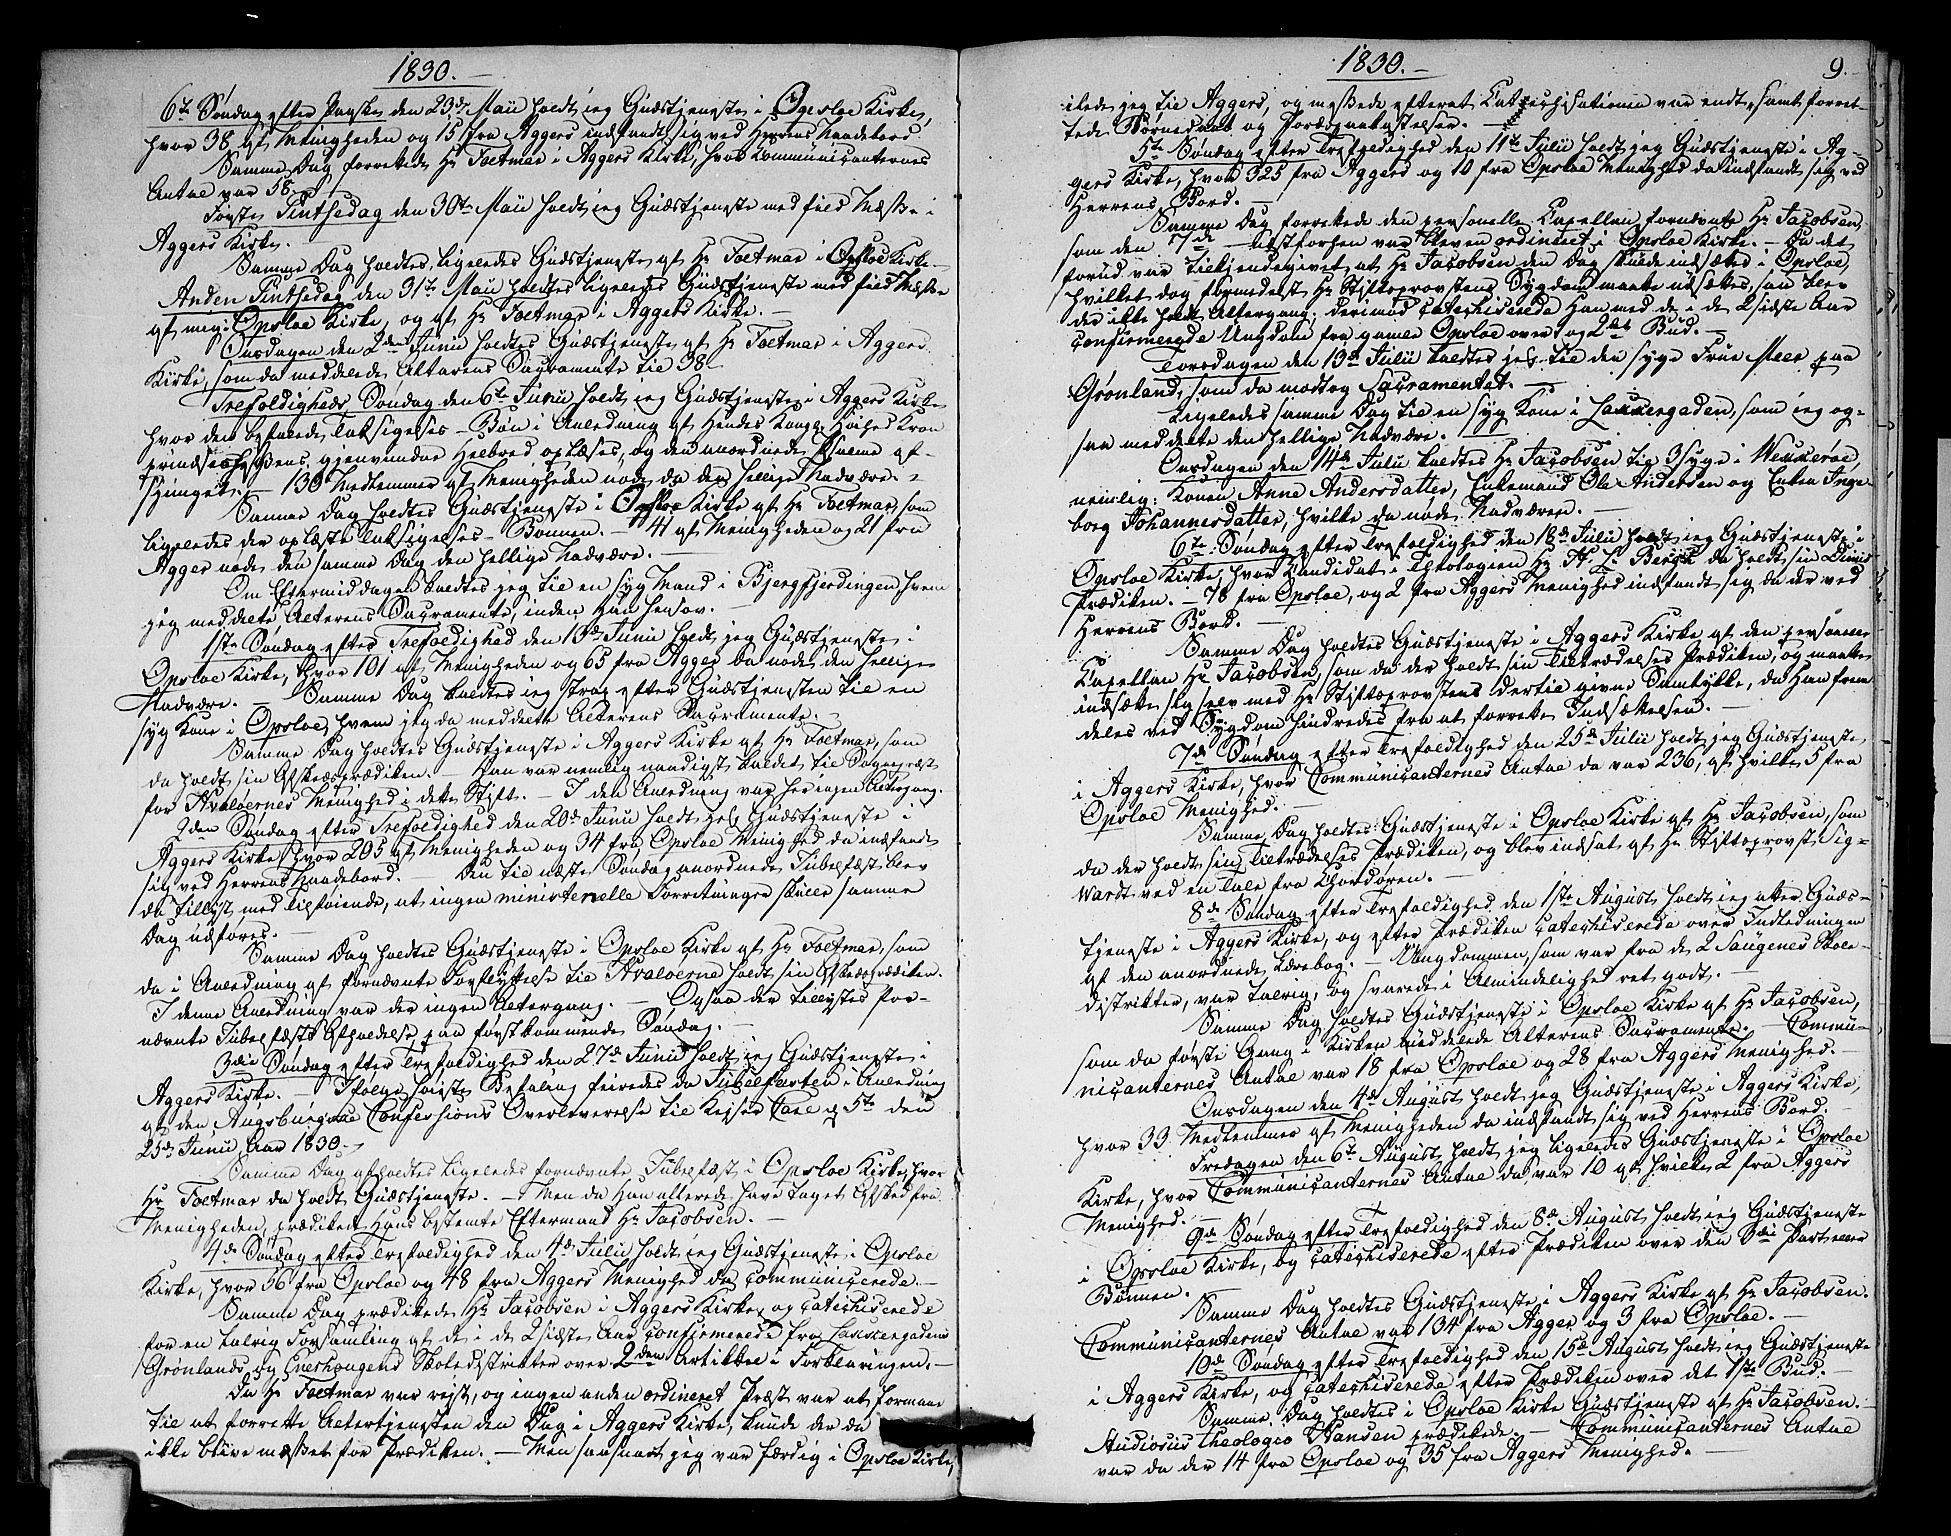 1830.
6te Søndag efter Paaske den 23de Maii holdt jeg Gudstjeneste i Opsloe Kirke,
hvor 38 af Menigheden og 15 fra Aggers indfandt sig ved Herrens Naadebord.
Samme Dag forrettede Hr Foetmar i Aggers Kirke, hvor Communicanternes
Antal var 58.
Første Pintsedag den 30te Maii holdt jeg Gudstjeneste med fuld Messe i
Aggers Kirke.
Samme Dag holdtes ligeledes Gudstjeneste af Hr Foetmar i Opsloe Kirke.
Anden Pintsedag den 31te Maii holdtes ligeledes Gudstjeneste med fuld Messe
af mig i Opsloe Kirke, og af Hr Foetmar i Aggers Kirke.
Onsdagen den 2den Junii holdtes Gudstjeneste af Hr Foetmar i Aggers
Kirke, som da meddelede Alterens Sacramente til 38.
Trefoldigheds Søndag den 6te Junii holdt jeg Gudstjeneste i Aggers Kirke
hvor den befalede Taksigelses-Bøn i Anledning af Hendes Kongl: Høihed Kron
prindsessens gjenvundne Helbred oplæses, og den anordnede Psalme af-
sjunget. - 130 Medlemmer af Menigheden nøde da den hellige Nadvere.
Samme Dag holdtes Gudstjeneste i Opsloe Kirke af Hr Foetmar, som
ligeledes der oplæste Taksigelses-Bønnen. - 41 af Menigheden og 21 fra
Agger nøde den samme Dag den hellige Nadvere. -
Om Eftermiddagen kaldtes jeg til en syg Mand i Bjergfjerdingen hvem
jeg meddelte Alterens Sacramente, inden Han hensov. -
1ste Søndag efter Trefoldighed den 13de Junii holdt jeg Gudstjeneste i
Opsloe Kirke, hvor 101 af Menigheden og 65 fra Agger da nøde den hellige
Nadvere. - Samme Dag kaldtes jeg strax efter Gudstjenesten til en
syg Kone i Opsloe, hvem jeg da meddelte Alterens Sacramente. -
Samme Dag holdtes Gudstjeneste i Aggers Kirke af Hr Foetmar, som
da holdt sin Afskedsprædiken. - Han var nemlig naadigst kaldet til Sognepræst
for Hvaløernes Menighed i dette Stift. - I den Anledning var her ingen Altergang.
2den Søndag efter Trefoldighed den 20de Junii holdt jeg Gudstjeneste i
Aggers Kirke, hvor 205 af Menigheden og 34 fra Opsloe Menighed da indfandt
sig ved Herrens Naadebord. - Den til næste Søndag anordnede Jubelfæst blev
da tillyst med Tilføiende, at ingen ministerielle Forretninger skulle samme
Dag udføres. -
Samme Dag holdtes Gudstjeneste i Opsloe Kirke af Hr Foetmar, som
da i Anledning af fornævnte Forflyttelse til Hvaløerne holdt sin Afskedsprædiken.
I denne Anledning var der ingen Altergang. - Ogsaa der tillystes for-
nævnte Jubelfæsts Afholdelse paa førstkommende Søndag. -
3die Søndag efter Trefoldighed den 27de Junii holdt jeg Gudstjeneste i
Aggers Kirke. - Ifølge høieste Befaling feiredes da Jubelfæsten i Anledning
af den Augsburgske Confessions Overleverelse til Keiser Carl den 5te den
25de Junii Aar 1530. -
Samme Dag afholdtes ligeledes fornævnte Jubelfæst i Opsloe Kirke, hvor
Hr Foetmar da holdt Gudstjeneste. - Men da Han allerede havde taget Afsked fra
Menigheden, prædikede Hans bestemte Eftermand Hr Jacobsen. -
4de Søndag efter Trefoldighed den 4de Julii holdt jeg Gudstjeneste i Opsloe
Kirke, hvor 56 fra Opsloe og 48 fra Aggers Menighed da communicerede. -
Samme Dag prædikede Hr Jacobsen i Aggers Kirke, og catechiserede
for en talrig Forsamling af de i de 2 sidste Aar confirmerede fra Lakkegadens
Grønlands, og Enerhaugens Skoledistrikter over 2den Artikkel i Forklaringen. -
Da Hr Foetmar var reist, og ingen anden ordineret Præst var at formaae
til at forrette Altertjenesten den Dag i Aggers Kirke, kunde der da
ikke blive messet før Prædiken. - Men saasnart jeg var færdig i Opsloe Kirke,
1830.
9.
ilede jeg til Aggers, og messede efterat Catechisationen var endt, samt forret-
tede Børnedaab og Jordpaakastelser. -
5te Søndag efter Trefoldighed den 11te Julii holdt jeg Gudstjeneste i Ag-
gers Kirke, hvor 325 fra Aggers og 10 fra Opsloe Menighed da indfandt sig ved
Herrens Bord. -
Samme Dag forrettede den personelle Capellan fornævnte Hr Jacobsen,
som den 7de næstforhen var bleven ordineret, i Opsloe Kirke. - Da det
forud var tilkjendegivet, at Hr Jacobsen den Dag skulde indsættes i Opsloe,
hvilket dog formedelst Hr Stiftsprovstens Sygdom maatte udsættes, saa blev
der ikke holdt Altergang; derimod catechiserede Han med de i de 2 sidste Aar
confirmerede Ungdom fra gamle Opsloe over og 2det Bud. -
Torsdagen den 13de Julii kaldtes jeg til den syge Frue Meer paa
Grønland, som da modtog Sacramentet. -
Ligeledes samme Dag til en syg Kone i Lakkegaden, som jeg og-
saa meddelte den hellige Nadvere. -
Onsdagen den 14de Julii kaldtes Hr Jacobsen til 3 syge i Wækkerøe,
nemlig: Konen Anne Andersdatter, Enkemand Ole Andersen og Enken Inge-
borg Johannesdatter, hvilke da nøde Nadveren. -
6te Søndag efter Trefoldighed den 18de Julii holdt jeg Gudstjeneste i
Opsloe Kirke, hvor Kandidat i Theologien Hr H. L. Bergh da holdt sin Dimis
Prædiken. - 78 fra Opsloe, og 2 fra Aggers Menighed indfandt sig da der ved
Herrens Bord. -
Samme Dag holdtes Gudstjeneste i Aggers Kirke af den personnel
Kapellan Hr Jacobsen, som da der holdt sin Tiltrædelses Prædiken, og maatte
indsætte sig selv med Hr Stiftsprovstens dertil givne Samtykke, da Han frem
deles ved Sygdom hindredes fra at forrette Indsættelsen. -
7de Søndag efter Trefoldighed den 25de Julii holdt jeg Gudstjeneste
i Aggers Kirke, hvor Communicanternes Antal da var 236, af hvilke 5 fra
Opsloe Menighed. -
Samme Dag holdtes Gudstjeneste i Opsloe Kirke af Hr Jacobsen, som
da der holdt sin Tiltrædelses Prædiken, og blev indsat af Hr Stiftsprovst Sig-
wardt ved en Tale fra Chordøren. -
8de Søndag efter Trefoldighed, den 1ste August holdt jeg atter Guds-
tjeneste i Aggers Kirke, og efter Prædiken catechiserede over Indledningen
af den anordnede Lærebog. - Ungdommen, som var fra de 2 Saugenes Skole-
districkter, var talrig, og svarede i Almindelighed ret godt. -
Samme Dag holdtes Gudstjeneste i Opsloe Kirke af Hr Jacobsen,
som da første Gang i Kirken uddelede Alterens Sacramente. - Commu-
nicanternes Antal var 18 fra Opsloe og 28 fra Aggers Menighed. -
Onsdagen den 4de August holdt jeg Gudstjeneste i Aggers Kirke,
hvor 33 Medlemmer af Menigheden da indfandt sig ved Herrens Bord. -
Fredagen den 6te August holdt jeg ligeledes Gudstjeneste i Opsloe
Kirke, hvor Communicanternes Antal da var 10 af hvilke 2 fra Aggers
Menighed. -
9de Søndag efter Trefoldighed den 8de August holdt jeg Gudstjeneste
i Opsloe Kirke, og catechiserede efter Prædiken over den 3die Part eller
Bønnen. -
Samme Dag holdtes Gudstjeneste i Aggers Kirke af Hr Jacobsen.
Communicanternes Antal var 134 fra Agger og 3 fra Opsloe. -
10de Søndag efter Trefoldighed den 15de August holdt jeg Gudstjeneste
i Aggers Kirke, og catechiserede efter Prædiken over det 1ste Bud. -
Samme Dag holdtes i Opsloe Kirke Gudstjeneste af Hr Jacobsen. -
Studiosus Theologiæ Hansen prædikede. - Communicanternes Antal
var da der 14 fra Opsloe og 35 fra Aggers Menighed. -